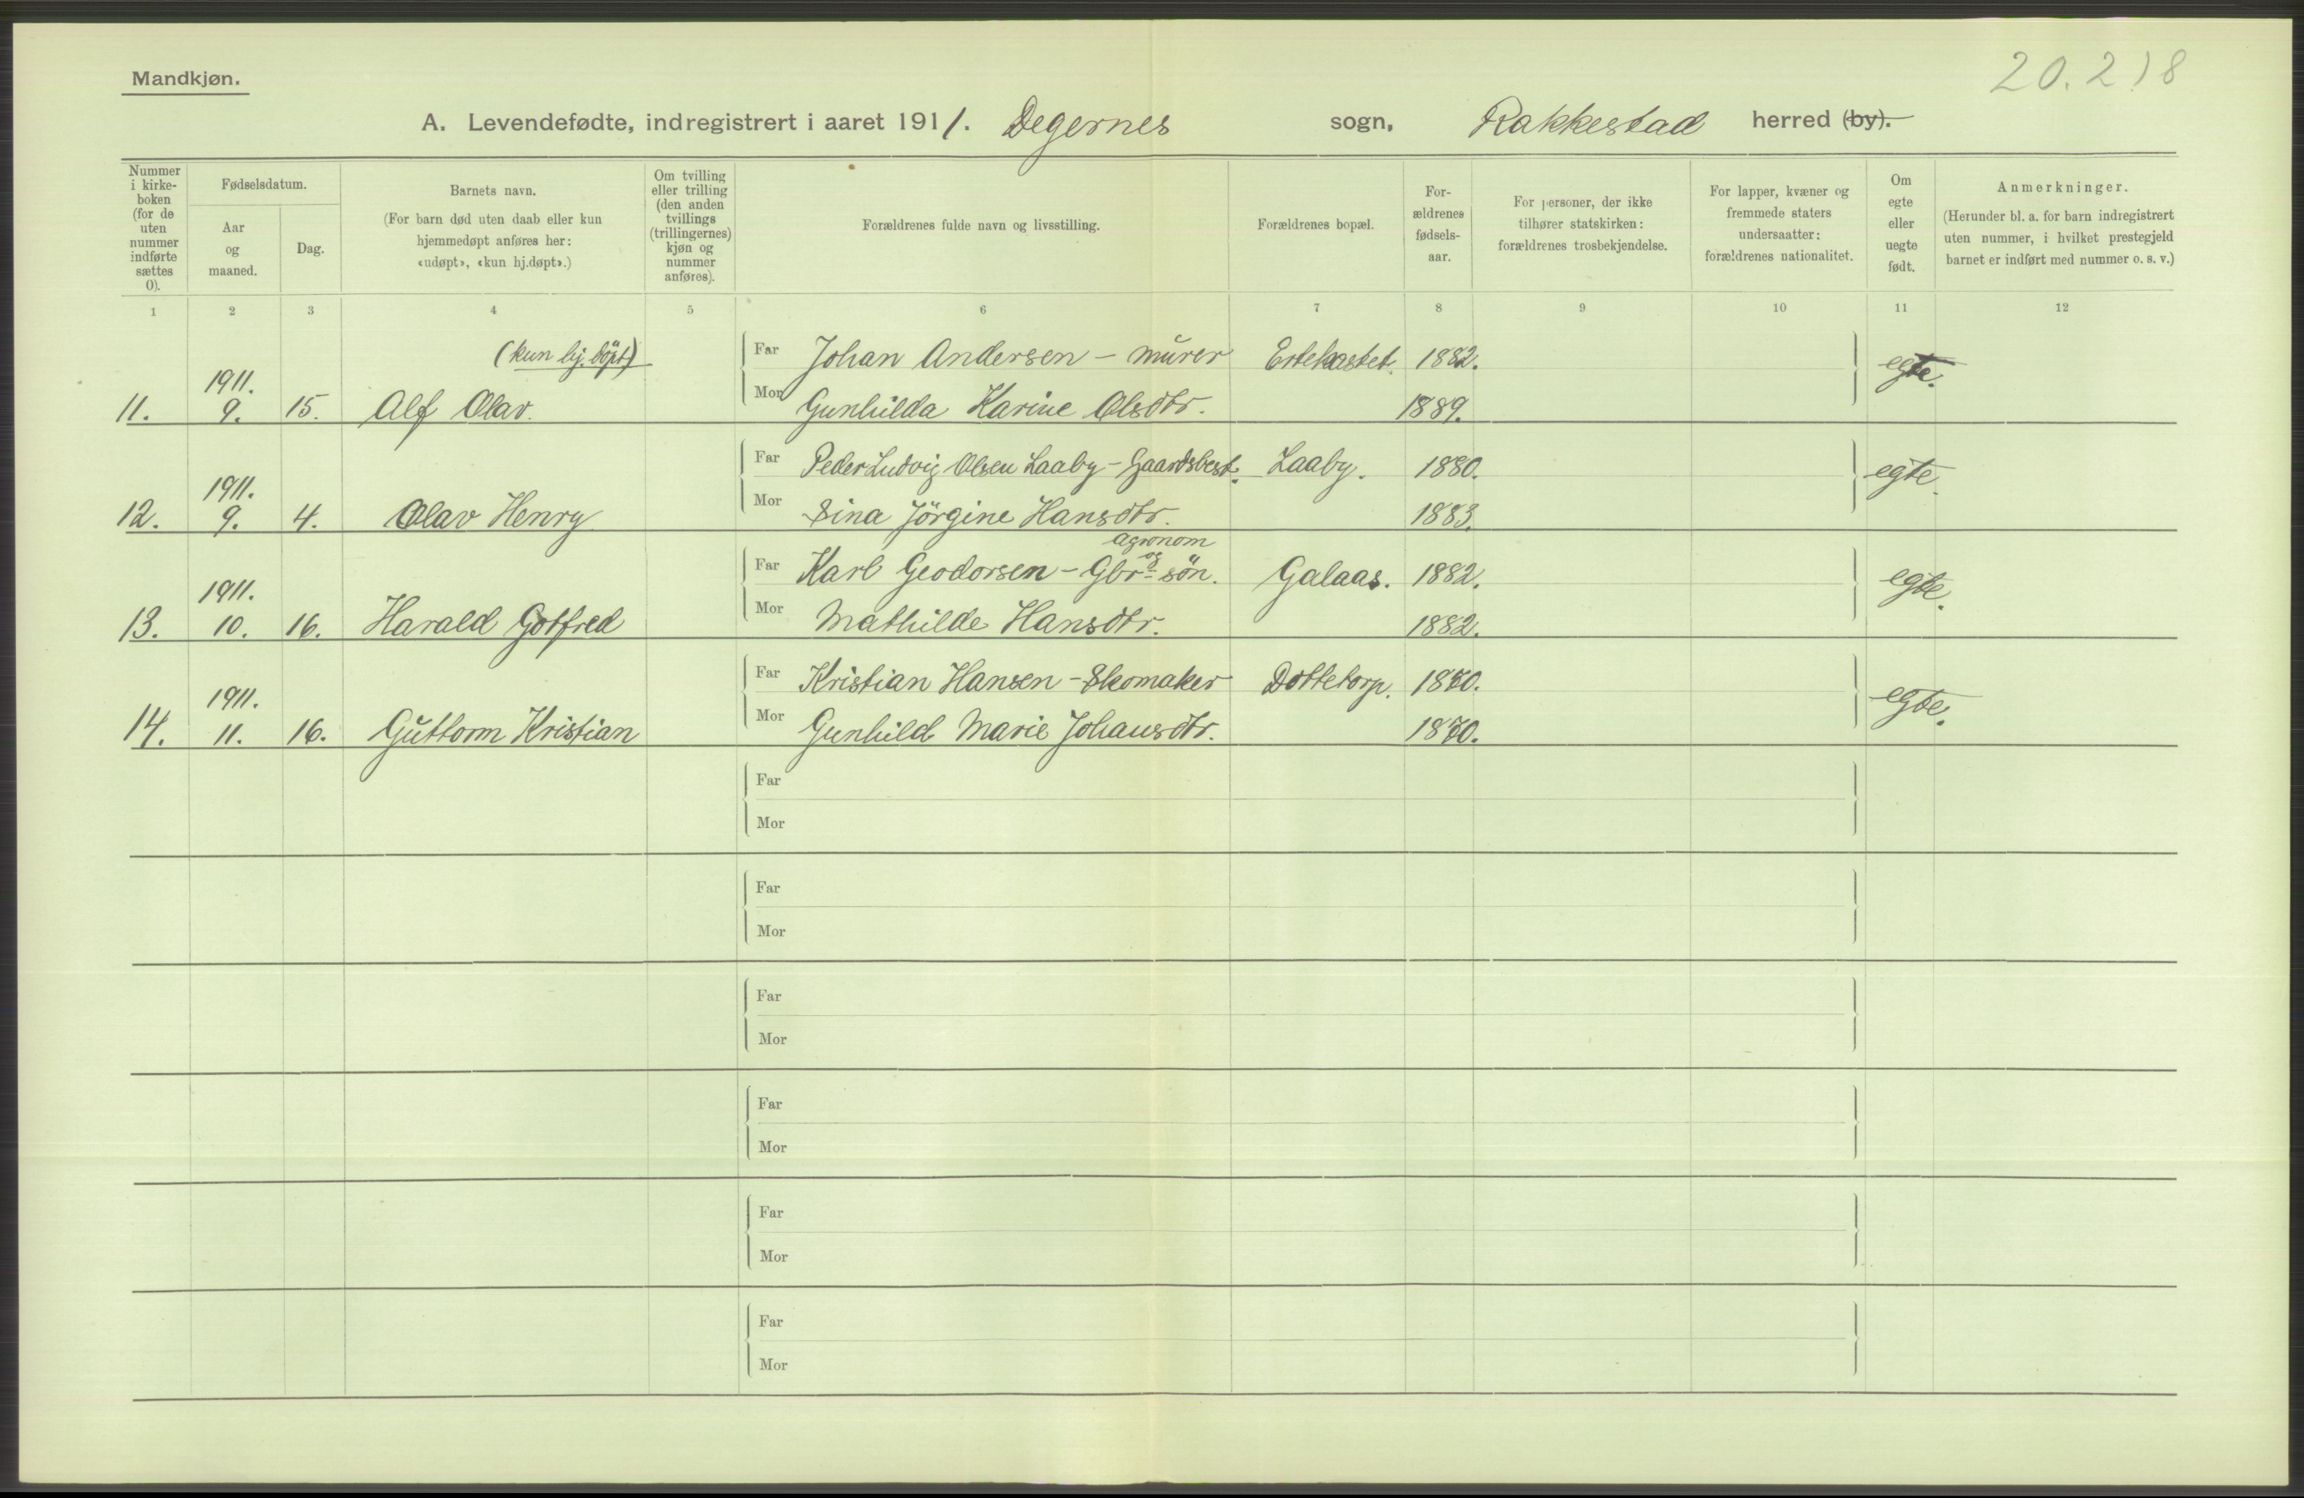 20.218
Mandkjøn.
A. Levendefødte, indregistrert i aaret 1911. Degernes sogn, Rakkestad herred (by).
Nummer i kirke-boken (for de uten nummer indførte sættes 0).
Fødselsdatum.
Aar og maaned.
Dag.
Barnets navn.
(For barn død uten daab eller kun hjemmedøpt anføres her: «udøpt», «kun hj.døpt».)
Om tvilling eller trilling (den anden tvillings (trillingernes) kjøn og nummer anføres).
Forældrenes fulde navn og livsstilling.
Forældrenes bopæl.
For-ældrenes fødsels-aar.
For personer, der ikke tilhører statskirken: forældrenes trosbekjendelse.
For lapper, kvæner og fremmede staters undersaatter: forældrenes nationalitet.
Om egte eller uegte født.
Anmerkninger.
(Herunder bl. a. for barn indregistrert uten nummer, i hvilket prestegjeld barnet er indført med nummer o. s. v.)
1 2 3 4 5 6 7 8 9 10 11 12
(kun hj. döpt) Far Johan Andersen - murer 1882. egte.
11. 1911. 9. 15. Alf Olav. Mor Gunhilda Karine Olsdtr. 1889.
Far Peder Ludvig Olsen Laaby - Gaardsbest. Laaby. 1880. egte.
12. 1911. 9. 4. Olav Henry Mor Sina Jörgine Hansdtr. 1883.
agronom
Far Karl Geodorsen - Gbr og sön. Galaas. 1882. egte.
13. 1911. 10. 16. Harald Gotfred Mor Mathilde Hansdtr. 1882.
Far Kristian Hansen - Skomaker Dottetorp. 1870. egte.
14. 1911. 11. 16. Guttorm Kristian Mor Gunhild Marie Johansdtr. 1870.
Far
Mor
Far
Mor
Far
Mor
Far
Mor
Far
Mor
Far
Mor